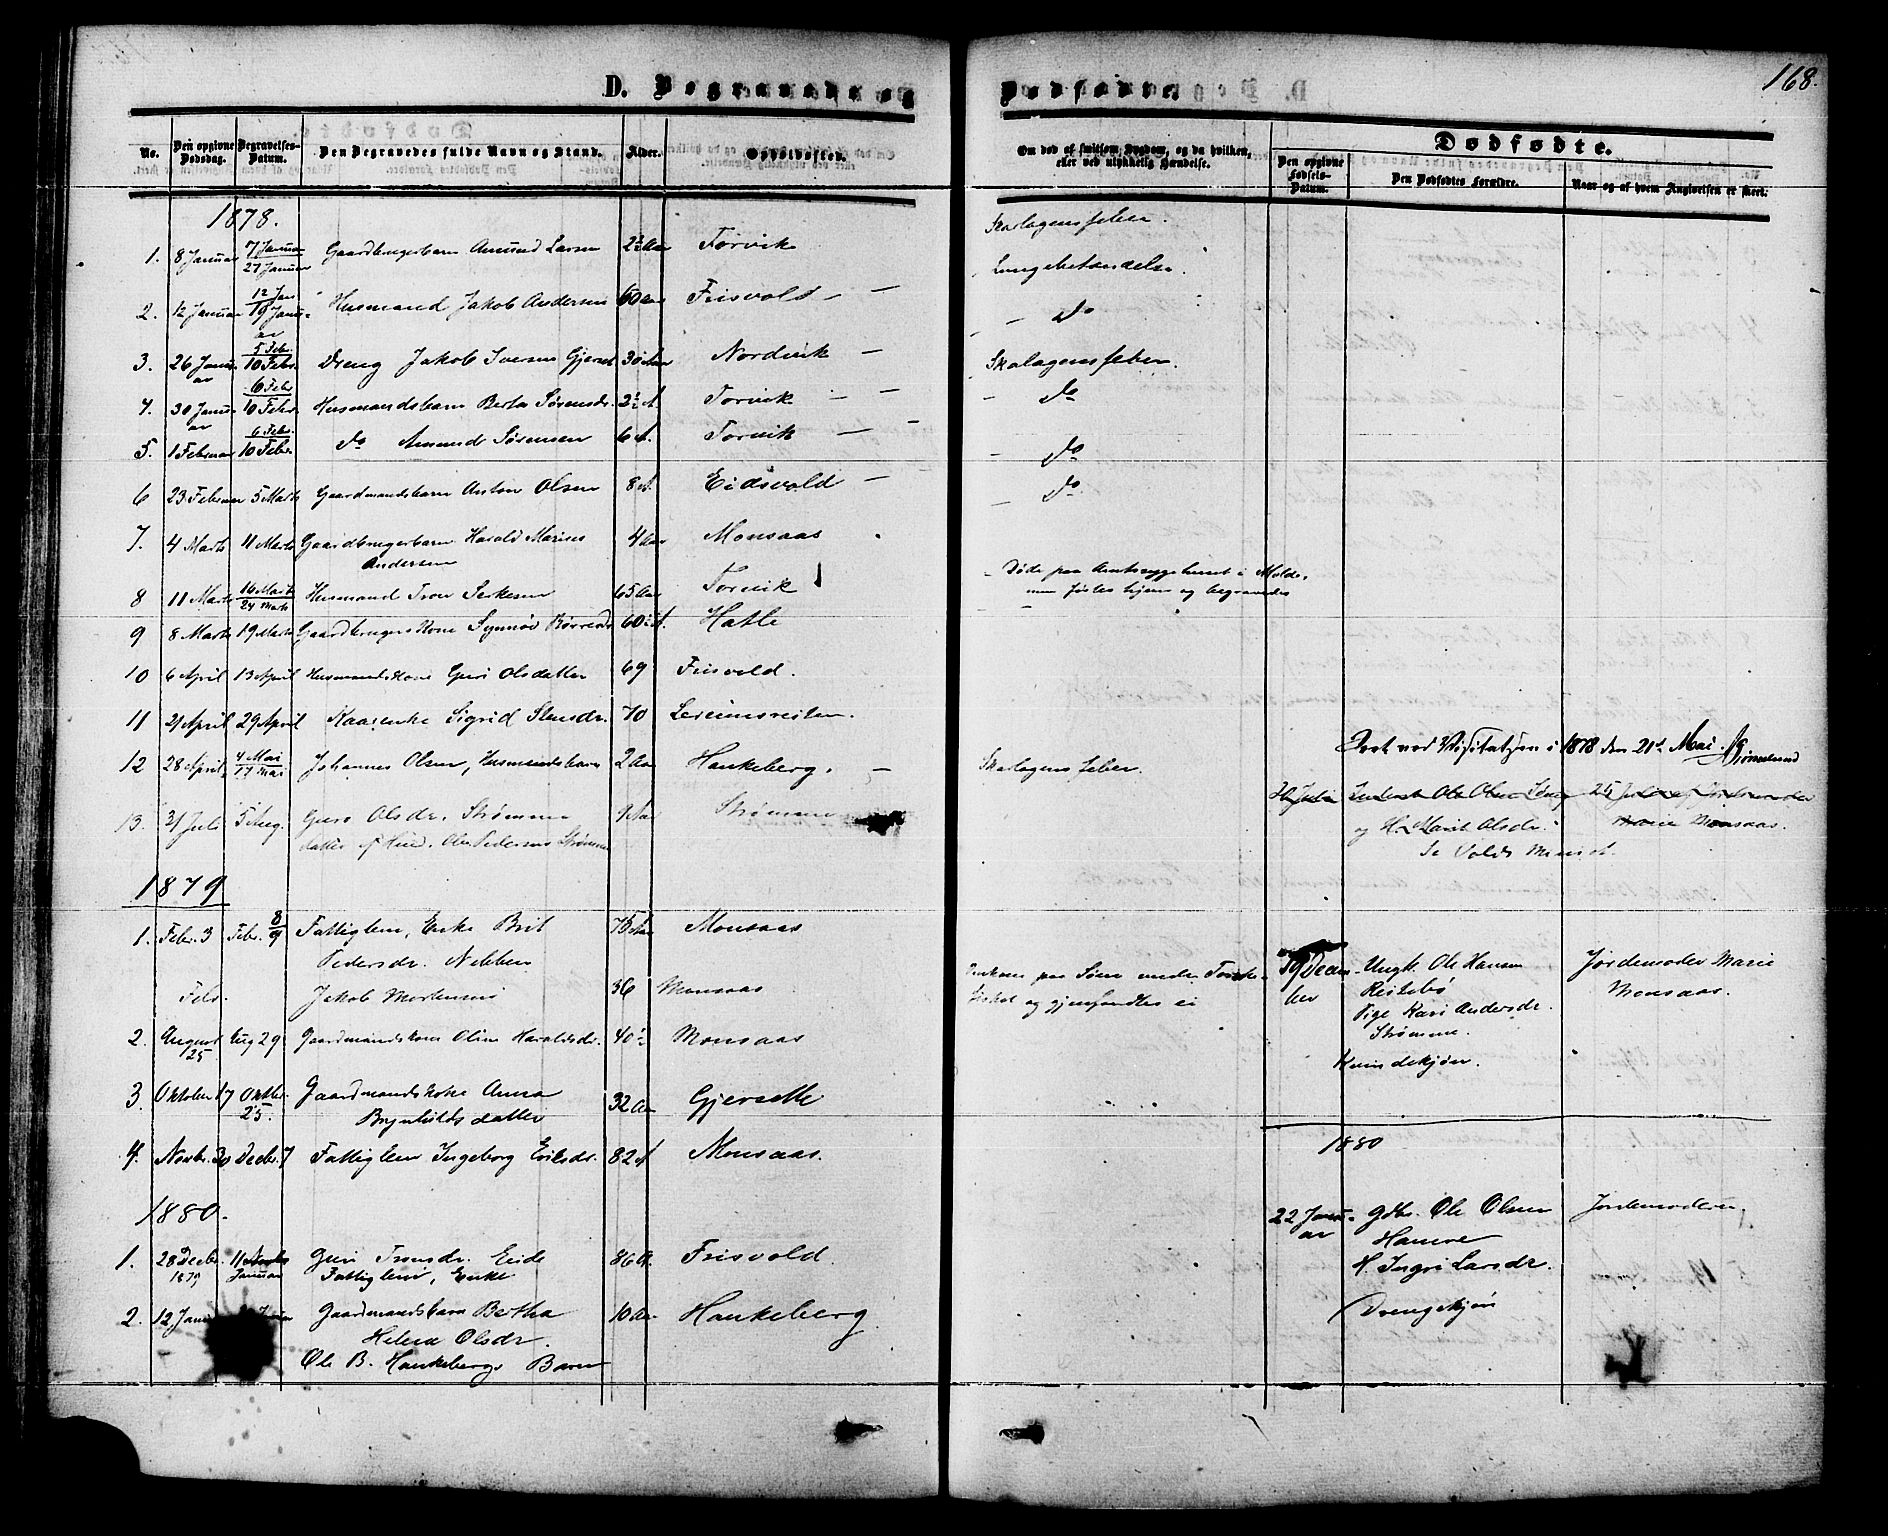 168.
D. Begravede og Dødfødte.
No. Den opgivne Dødsdag. Begravelses-Datum. Den Begravedes fulde Navn og Stand. Alder. Opholdssted.
Om død af smitsom Sygdom, og da hvilken, eller ved ulykkelig Hændelse.
Dødfødte.
Den opgivne Fødsels-Datum. Den Dødfødtes Forældre. Naar og af hvem Angivelsen er skeet.
1878.
1. 8 Januar 7 Januar 27 Januar Gaardbrugerbarn Amund Larsen 2½ Aar Torvik Skarlagensfeber.
2. 12 Januar 12 Jan 19 Januar Husmand Jakob Andersen 60 Aar Frisvold — Lungebetændelse.
3. 26 Januar 5 Febr. 10 Febr. Dreng Jakob Iversen Gjerset 30 Aar Nordvik — Do
4. 30 Januar 6 Febr 10 Febr. Husmandsbarn Berta Sørensdr. 2½ A. Torvik — Skalagensfeber.
5. 1 Februar 6 Febr. 10 Febr. do Amund Sørensen 6 A. Torvik — Do
6 23 Februar 5 Marts Gaardmandsbarn Anton Olsen 8 A. Eidsvold — Do
7. 4 Marts 11 Marts Gaardbrugerbarn Harald Marius 4 Aar Monsaas Do
Andersen
8 11 Marts 16 Marts 24 Marts Husmand Tron 65 Aar Torvik Døde paa Amtssygehuset i Molde,
men førtes hjem og begravedes
9 8 Marts 19 Marts Gaardbrugers Kone Synnøv 60 A. Hatle
10 6 April 13 April Husmands Kone Guri Olsdatter 69 Frisvold.
11 21 April 29 April Kaarenke Sigrid Stensdr. 70
12 28 April 4 Mai 17 Mai Johannes Olsen, Husmandsbarn 2 Aar Haukeberg. — Skarlagensfeber.
Seet ved Visitatsen i 1878 den 21de Mai.
13. 31 Juli 5 Aug. Guro Olsdr. Strømme 9 Aar Strømme
datter af Olen Pedersen Strømme
Juli Ole Olsen 25 Juli af Jordemoder
og H. Marit Olsdr. Marie Monsaas.
Se Volds
1879
1. Febr. 3 Febr. 8/9 Fattiglem, Enke Brit 75 Aar Monsaas
Pedersdr. Nebben
Febr. Jakob Mortensen 36 Monsaas Omkom paa Søen under Torske-
fisket og gjenfandtes ei
19 December Ungk. Ole Hansen Jordemoder Marie
Ristebø Monsaas.
Pige Kari Andersdr.
Strømme.
Kvindekjøn.
2. August 25 Aug 29 Gaardmandskone Oline Haraldsdr. 40½ Monsaas
3. Oktober 17 Oktbr. 25. Gaardmandskone Anna 32 Aar Gjersette
Brynhildsdatter
4. Novbr. 30 Decbr. 7 Fattiglem Ingeborg Eriksdr. 82 A Monsaas.
1880
22 Januar Gdbr. Ole Olsen Jordemoderen
Hamre
H. Ingri Larsdr.
Drengekjøn
1880.
1. 28 Decbr. 1879 11 Januar Guri Tronsdr. Eide 86 A. Frisvold.
Fattiglem, Enke
2. 12 Gaardmandsbarn Bertha 10 Aar Haukeberg.
Helena Olsdr.
Ole B. Haukebergs Barn